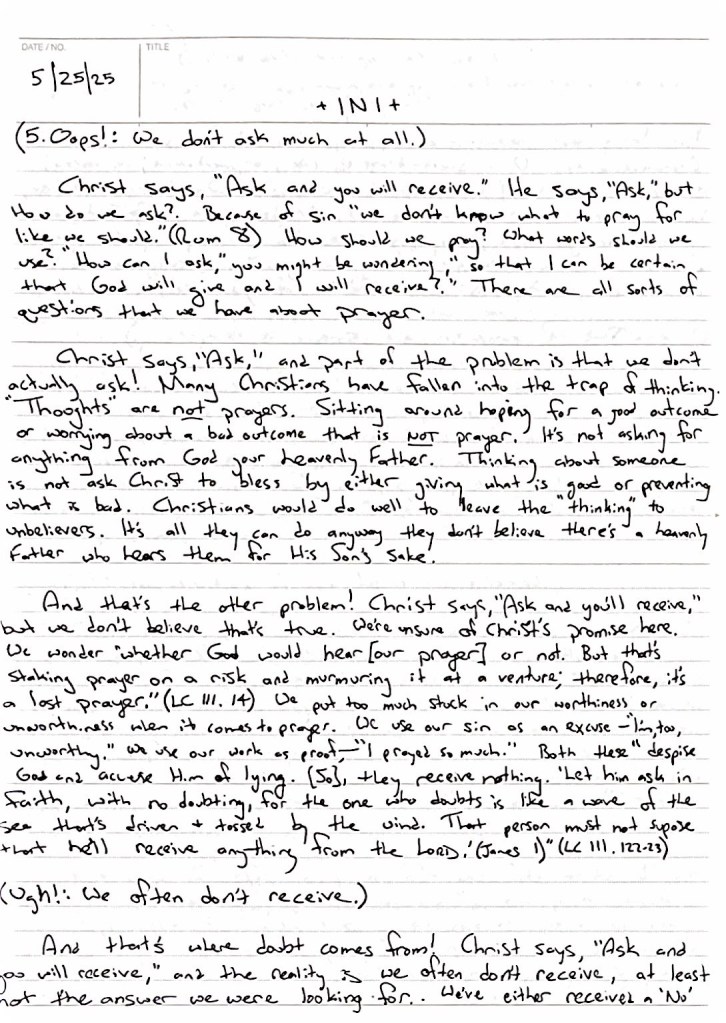 DATE/NO.
TITLE
5/25/25
+ I N I +
(5. Oops!: We don't ask much at all.)
Christ says, "Ask and you will receive." He says, "Ask," but
How do we ask?. Because of sin "we don't know what to pray for
like we should." (Rom 8) How should we pray? What words should we
use? "How can I ask," you might be wondering, "so that I can be certain
that God will give and I will receive?." There are all sorts of
questions that we have about prayer.
Christ says, "Ask," and part of the problem is that we don't
actually ask! Many Christians have fallen into the trap of thinking.
"Thoughts" are not prayers. Sitting around hoping for a good outcome
or worrying about a bad outcome that is NOT prayer. It's not asking for
anything from God your heavenly Father. Thinking about someone
is not ask Christ to bless by either giving what is good or preventing
what is bad. Christians would do well to leave the "thinking" to
unbelievers. It's all they can do anyway they don't believe there's a heavenly
Father who hears them for His Son's sake.
And that's the other problem! Christ says, "Ask and you'll receive,"
but we don't believe that's true. We're unsure of Christ's promise here.
We wonder "whether God would hear [our prayer] or not. But that's
staking prayer on a risk and murmuring it at a venture; therefore, it's
a lost prayer." (LC III. 14) We put too much stock in our worthiness or
unworthiness when it comes to prayer. We use our sin as an excuse – "I'm, too,
unworthy." We use our work as proof, – "I prayed so much." Both these "despise
God and accuse Him of lying. [So], they receive nothing. 'Let him ask in
faith, with no doubting, for the one who doubts is like a wave of the
sea that's driven + tossed by the wind. That person must not supose
that he'll receive anything from the LORD.' (James 1)" (LC III. 122-23)
(Ugh!: We often don't receive.)
And that's where doubt comes from! Christ says, "Ask and
you will receive," and the reality is we often don't receive, at least
not the answer we were looking for.. We've either received a 'No'